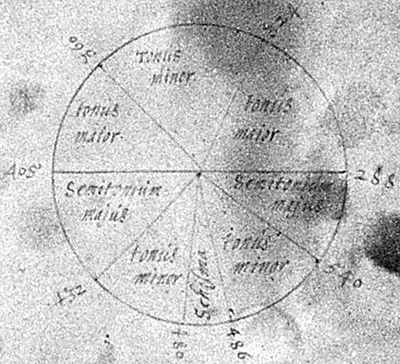 360
Tonus
minor
tonus
maior
tonus
maior
405
288
Semitonium
majus
Semitonium
majus
tonus
minor
Schisma
tonus
minor
540
432
480
486